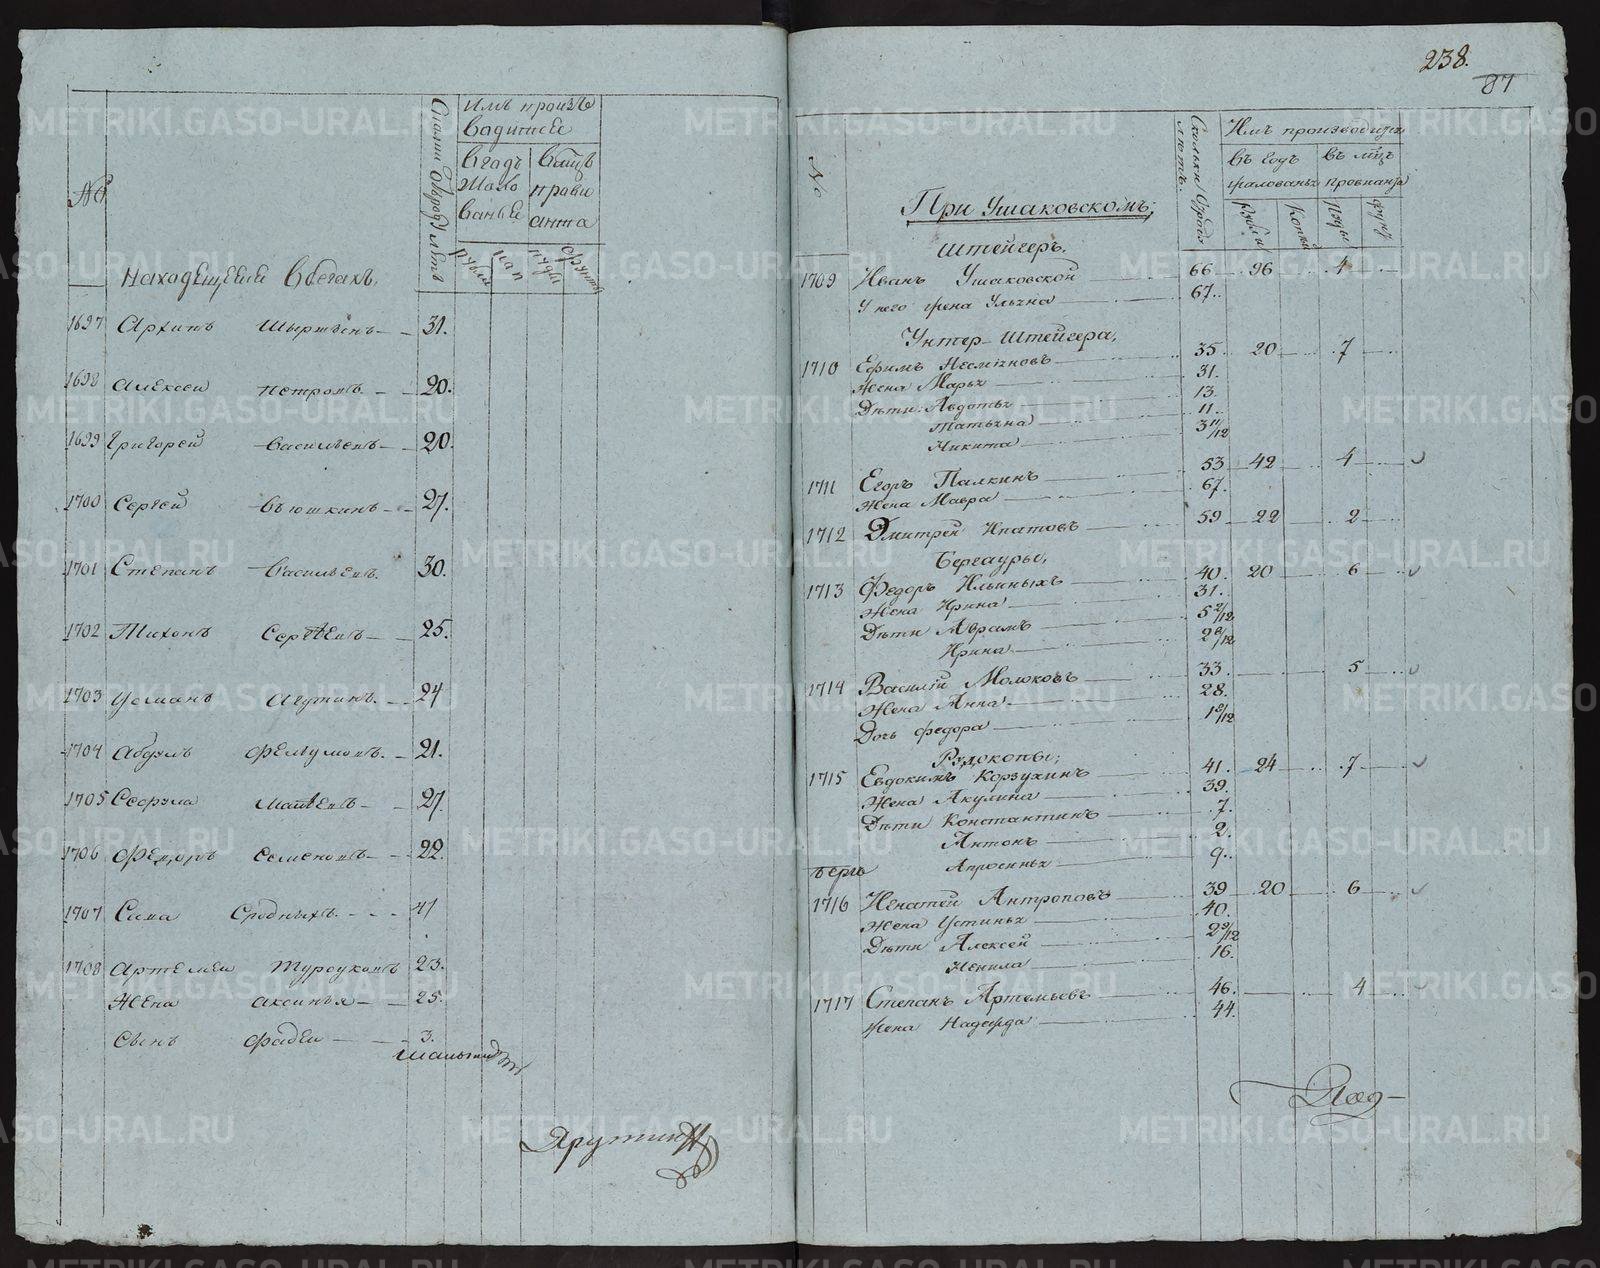 №
Находѣщеиѣ Вбегахъ.
Имъ произъ
водитсе
Вгодъ
Жало
ванье
Вмцъ
прови
анта
рубли
коп
пуды
фунты
1697 Архипъ Шыршовъ 31.
1698 Алексеи Петровъ 20.
1699 Григорей Васильевъ 20.
1700 Сергей Въюшкинъ 27.
1701 Степанъ Васильевъ. 30.
1702 Тихонъ Сергѣевъ 25.
1703 Усманъ Агутинъ. 24
1704 Абдулъ 21.
1705 Матвѣевъ 27
1706 Федоръ Семеновъ 22.
1707 Сава Сродныхъ. 41
1708 Артемеи Турсуковъ 23.
Жена Аксинъя 25.
Сынъ Фадеи 3.
238.
87
№
При Ушаковскомъ;
Сколки отроду летъ.
Имъ производитъ
въ годъ жалованья
въ мцъ провианта
Рубли
Копѣ
Пуды
Фунт
Штейгеръ.
1709 Иванъ Ушаковской 66 96 4
У него жена Ульяна 67.
Унтер-Штейгера,
1710 Ефимъ Несмѣновъ 35 20 7
Жена Марья 31.
Дѣти: Авдотья 13.
Татьяна 11.
Никита 3 11/12
1711 Егоръ Палкинъ 53 42 4
Жена Мавра 67.
1712 Дмитрей Ипатовъ 59 22 2
Бергауры,
1713 Федоръ Ильиныхъ 40. 20 6
Жена Ирина 31.
Дѣти Аврамъ 5 2/12
Ирина 2 2/12
1714 Василій Молоковъ 33 5
Жена Анна 28.
Дочь Федора 1 2/12
Рудокопы;
1715 Евдокимъ Корзухинъ 41. 24 7
Жена Акулина 39.
Дѣти Константинъ 7.
Антонъ 2.
Апросинья 9.
берг
1716 Игнатей Антроповъ 39 20 6
Жена Устинья 40.
Дѣти Алексей 2 9/12
Ненила 16.
1717 Степанъ Артемьевъ 46. 4
Жена Надежда 44.